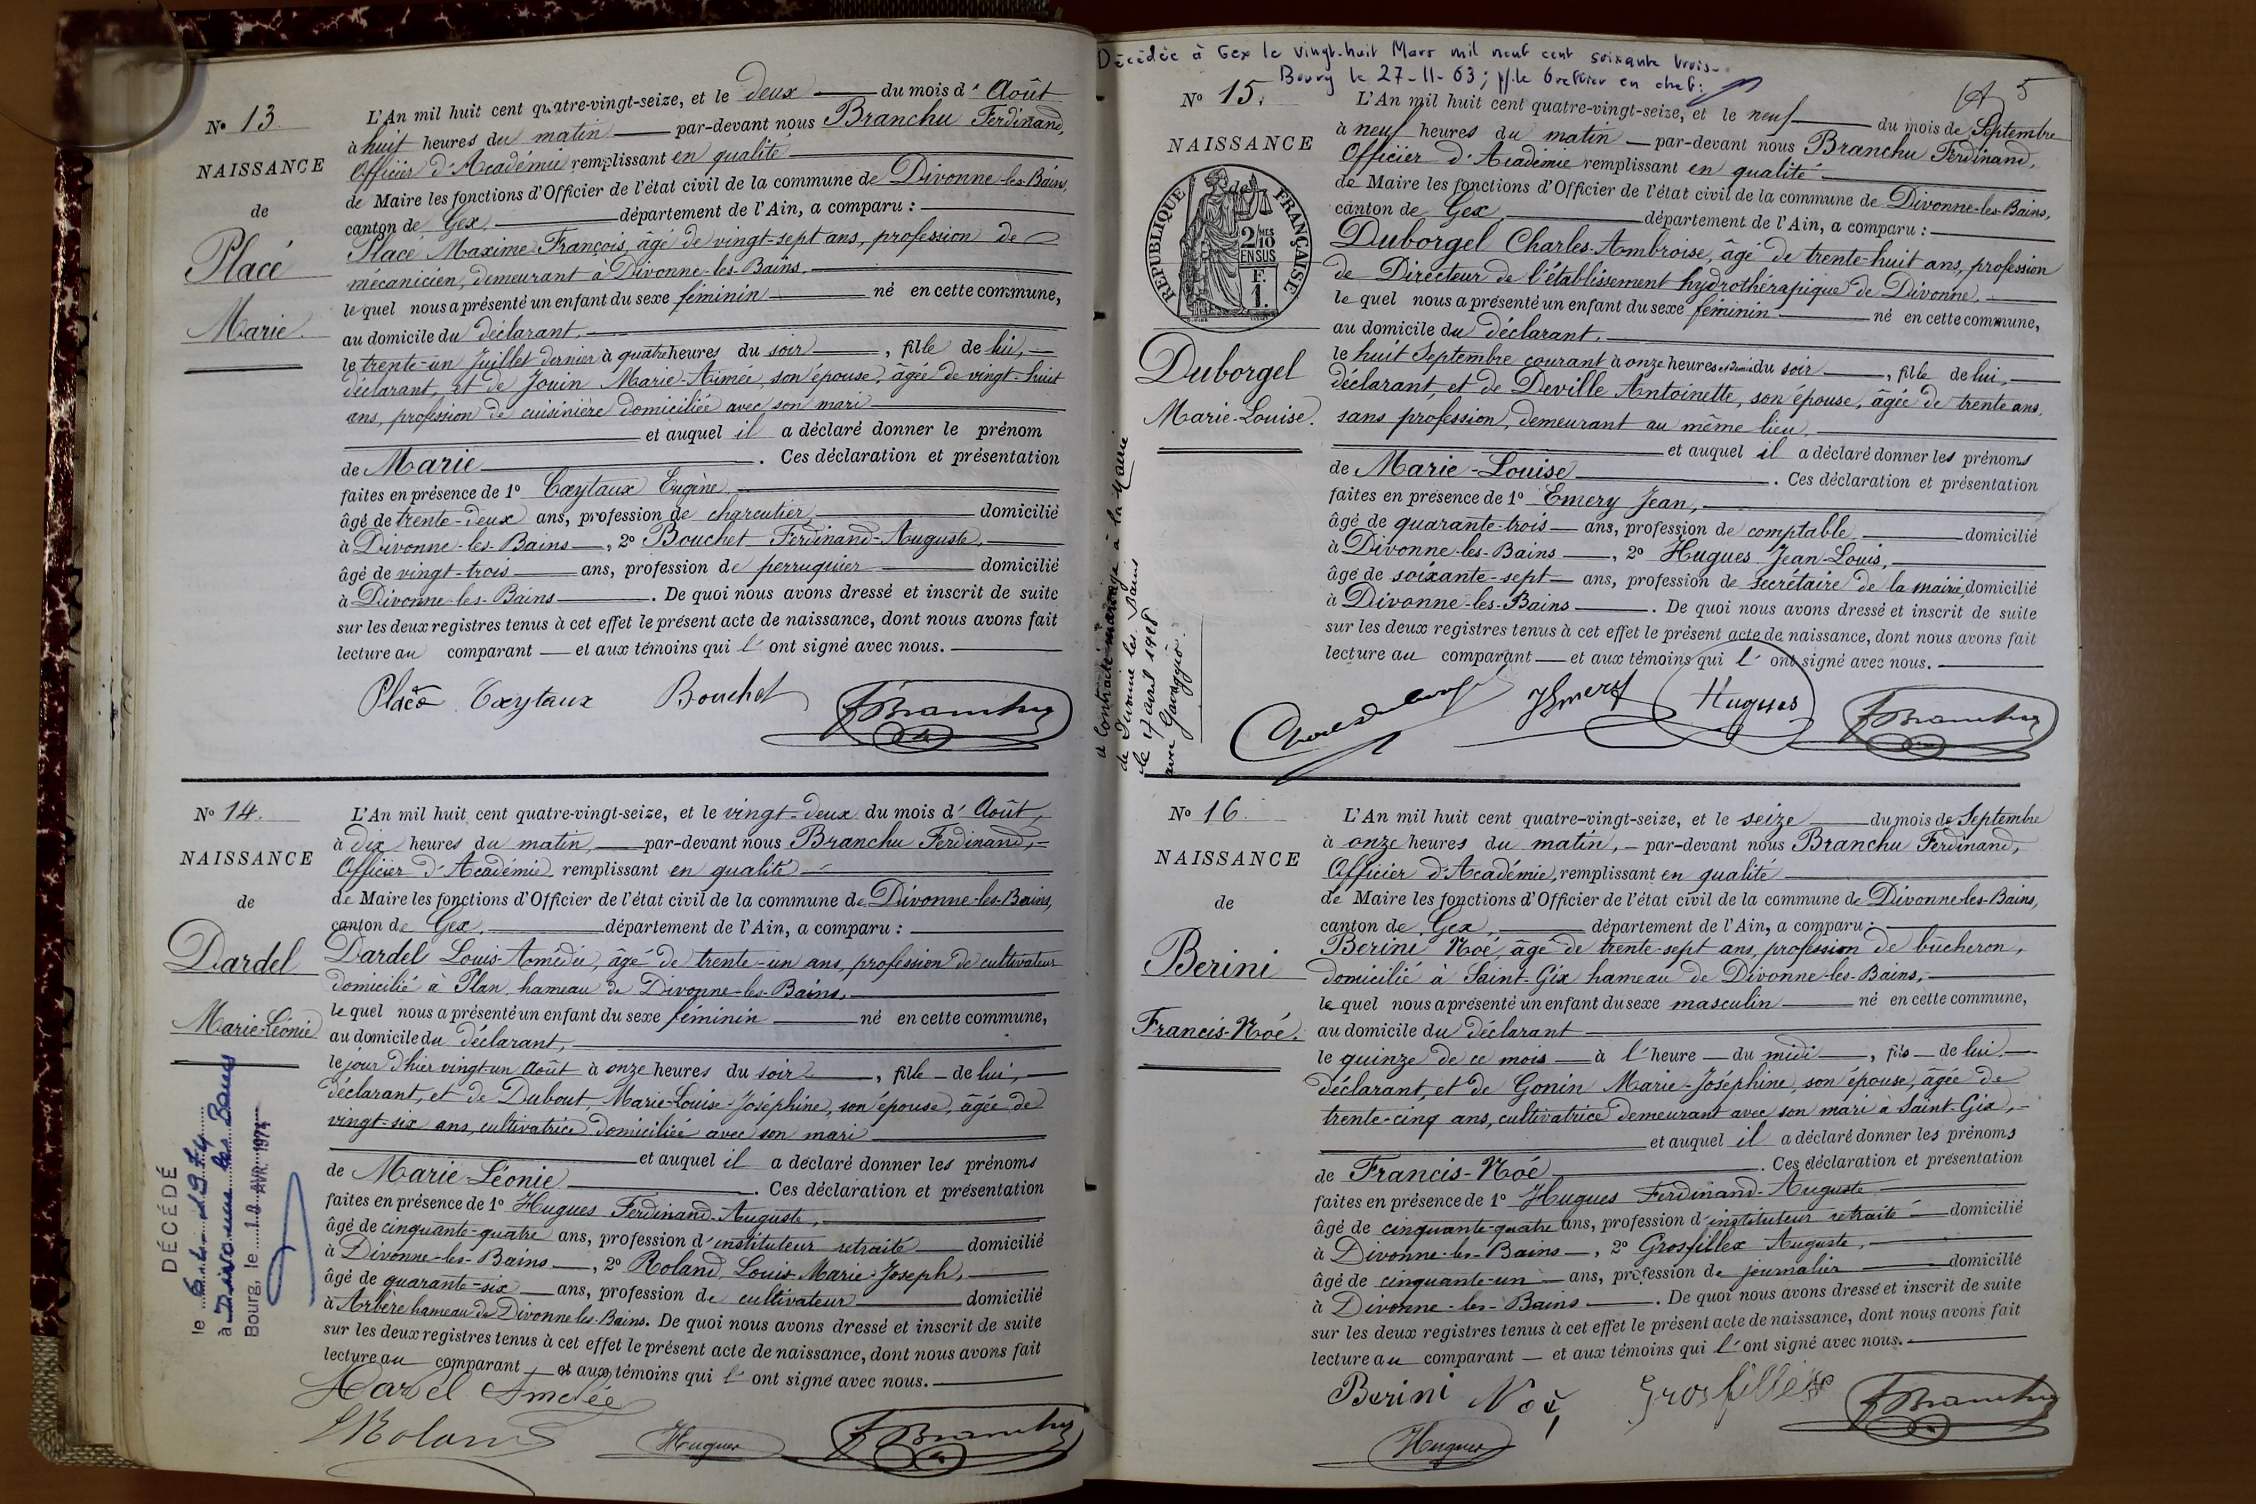 N° 13.
NAISSANCE
de
Placé
Marie.
L'An mil huit cent quatre-vingt-seize, et le deux du mois d'Août
à huit heures du matin par-devant nous Branchu Ferdinand,
Officier d'Académie remplissant en qualité
de Maire les fonctions d'Officier de l'état civil de la commune de Divonne-les-Bains,
canton de Gex, département de l'Ain, a comparu :
Placé Maxime François, âgé de vingt-sept ans, profession de
mécanicien, demeurant à Divonne-les-Bains.
le quel nous a présenté un enfant du sexe féminin né en cette commune,
au domicile du déclarant.
le trente-un Juillet dernier à quatre heures du soir, fille de lui,
déclarant, et de Jouin Marie-Aimée, son épouse, âgée de vingt-huit
ans, profession de cuisinière domiciliée avec son mari
et auquel il a déclaré donner le prénom
de Marie. Ces déclaration et présentation
faites en présence de 1° Caytaux Eugène,
âgé de trente-deux ans, profession de charcutier, domicilié
à Divonne-les-Bains, 2° Bouchet Ferdinand-Auguste,
âgé de vingt-trois ans, profession de perruquier domicilié
à Divonne-les-Bains. De quoi nous avons dressé et inscrit de suite
sur les deux registres tenus à cet effet le présent acte de naissance, dont nous avons fait
lecture au comparant et aux témoins qui l'ont signé avec nous.
Placé Caytaux Bouchet FBranchu
N° 14.
NAISSANCE
de
Dardel
Marie-Léonie
DÉCÉDÉ
le 1974
à Divonne les Bains
Bourg, le AVR. 1974
L'An mil huit cent quatre-vingt-seize, et le vingt-deux du mois d'Août,
à dix heures du matin, par-devant nous Branchu Ferdinand,
Officier d'Académie remplissant en qualité
de Maire les fonctions d'Officier de l'état civil de la commune de Divonne-les-Bains,
canton de Gex, département de l'Ain, a comparu :
Dardel Louis-Amédée, âgé de trente-un ans, profession de cultivateur
domicilié à Plan hameau de Divonne-les-Bains,
le quel nous a présenté un enfant du sexe féminin né en cette commune,
au domicile du déclarant,
le jour d'hier vingt-un Août à onze heures du soir, fille de lui,
déclarant, et de Dubout Marie-Louise-Joséphine, son épouse, âgée de
vingt-six ans, cultivatrice domiciliée avec son mari
et auquel il a déclaré donner les prénoms
de Marie-Léonie. Ces déclaration et présentation
faites en présence de 1° Hugues Ferdinand-Auguste,
âgé de cinquante-quatre ans, profession d'instituteur retraité domicilié
à Divonne-les-Bains, 2° Roland Louis-Marie-Joseph,
âgé de quarante-six ans, profession de cultivateur domicilié
à Arbère hameau de Divonne-les-Bains. De quoi nous avons dressé et inscrit de suite
sur les deux registres tenus à cet effet le présent acte de naissance, dont nous avons fait
lecture au comparant, et aux témoins qui l'ont signé avec nous.
Dardel Amédée
LRoland Hugues FBranchu
Décédée à Gex le vingt-huit Mars mil neuf cent soixante trois.
Bourg le 27-11-63; p/. le Greffier en chef:
5
N° 15.
NAISSANCE
de
REPUBLIQUE FRANÇAISE
2/10 MES
EN SUS
F.
1.
Duborgel
Marie-Louise.
a contracté mariage à la Mairie
de Divonne les Bains
le 17 avril 1918
avec
L'An mil huit cent quatre-vingt-seize, et le neuf du mois de Septembre
à neuf heures du matin par-devant nous Branchu Ferdinand,
Officier d'Académie remplissant en qualité
de Maire les fonctions d'Officier de l'état civil de la commune de Divonne-les-Bains,
canton de Gex, département de l'Ain, a comparu :
Duborgel Charles-Ambroise, âgé de trente-huit ans, profession
de Directeur de l'établissement hydrothérapique de Divonne.
le quel nous a présenté un enfant du sexe féminin né en cette commune,
au domicile du déclarant.
le huit Septembre courant à onze heures et demie du soir, fille de lui,
déclarant, et de Deville Antoinette, son épouse, âgée de trente ans,
sans profession, demeurant au même lieu,
et auquel il a déclaré donner les prénoms
de Marie-Louise. Ces déclaration et présentation
faites en présence de 1° Emery Jean,
âgé de quarante-trois ans, profession de comptable domicilié
à Divonne-les-Bains, 2° Hugues Jean-Louis,
âgé de soixante-sept ans, profession de secrétaire de la mairie, domicilié
à Divonne-les-Bains. De quoi nous avons dressé et inscrit de suite
sur les deux registres tenus à cet effet le présent acte de naissance, dont nous avons fait
lecture au comparant et aux témoins qui l'ont signé avec nous.
JEmery Hugues FBranchu
N° 16.
NAISSANCE
de
Berini
Francis-Noé.
L'An mil huit cent quatre-vingt-seize, et le seize du mois de Septembre
à onze heures du matin, par-devant nous Branchu Ferdinand,
Officier d'Académie, remplissant en qualité
de Maire les fonctions d'Officier de l'état civil de la commune de Divonne-les-Bains,
canton de Gex, département de l'Ain, a comparu :
Berini Noé, âgé de trente-sept ans, profession de bûcheron,
domicilié à Saint-Gix hameau de Divonne-les-Bains,
le quel nous a présenté un enfant du sexe masculin né en cette commune,
au domicile du déclarant
le quinze de ce mois à l'heure du midi, fils de lui.
déclarant, et de Gonin Marie-Joséphine, son épouse, âgée de
trente-cinq ans, cultivatrice demeurant avec son mari à Saint-Gix,
et auquel il a déclaré donner les prénoms
de Francis-Noé. Ces déclaration et présentation
faites en présence de 1° Hugues Ferdinand-Auguste
âgé de cinquante-quatre ans, profession d'instituteur retraité domicilié
à Divonne-les-Bains, 2° Grosfillex Auguste,
âgé de cinquante-un ans, profession de journalier domicilié
à Divonne-les-Bains. De quoi nous avons dressé et inscrit de suite
sur les deux registres tenus à cet effet le présent acte de naissance, dont nous avons fait
lecture au comparant et aux témoins qui l'ont signé avec nous.
Berini Noé Grosfillex FBranchu
Hugues